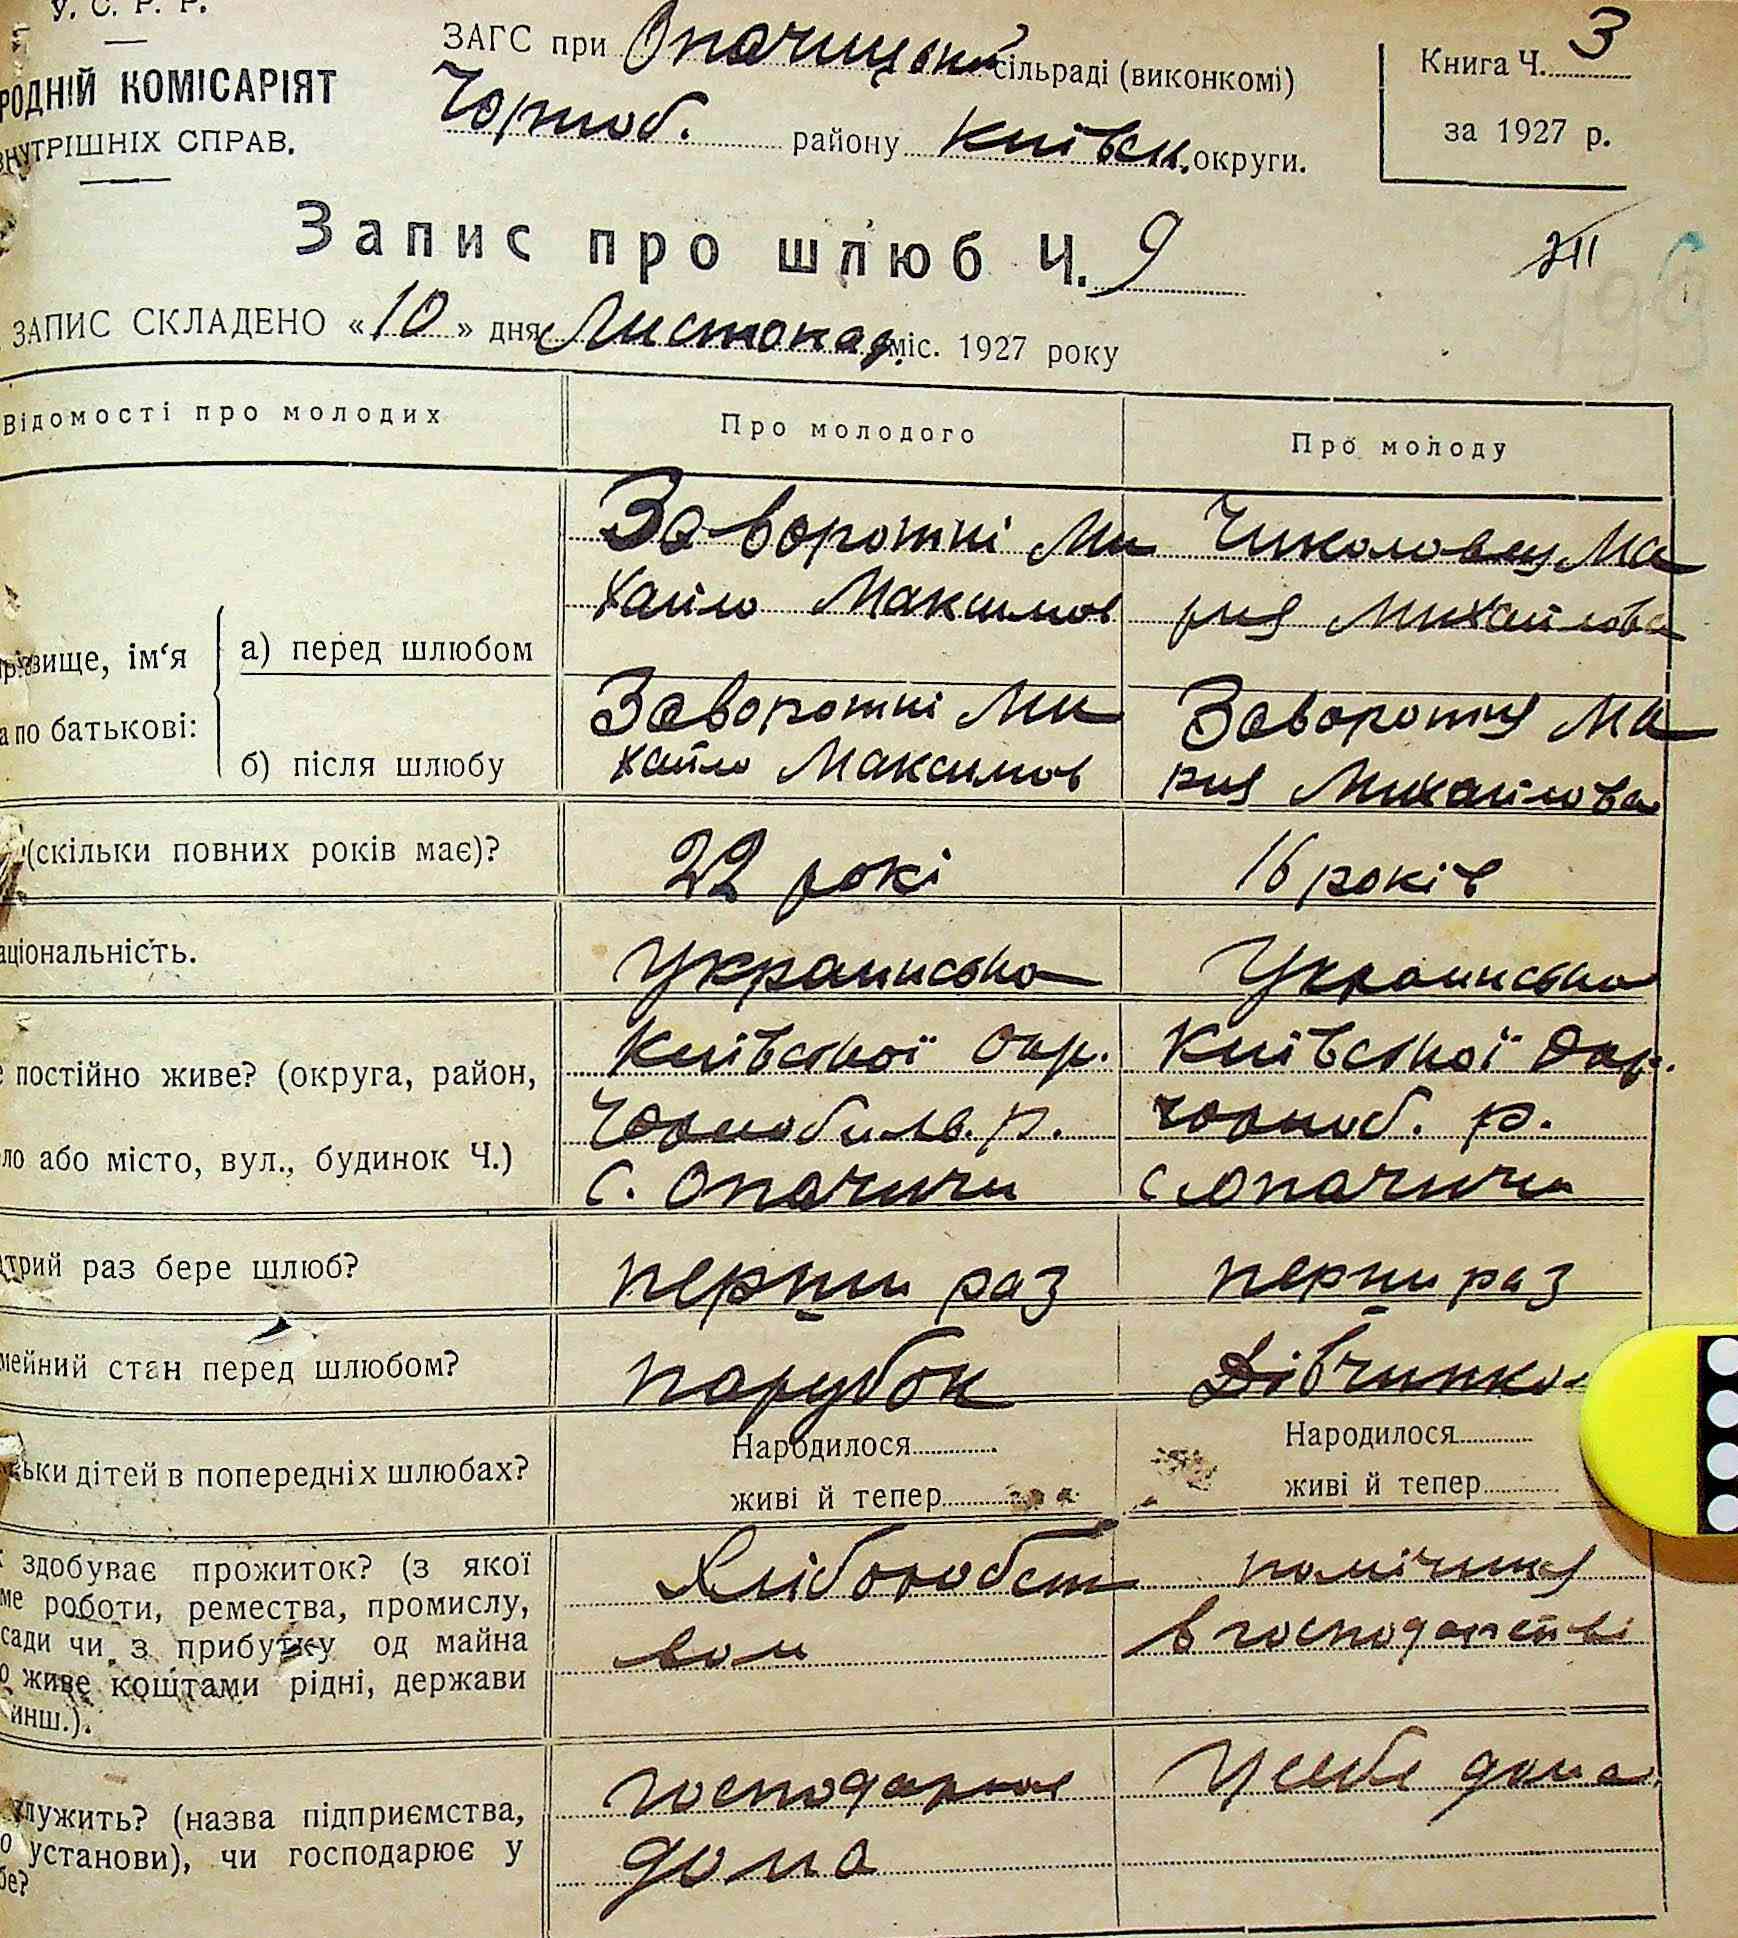 У. С. Р. Р.
РОДНІЙ КОМІСАРІЯТ
ВНУТРІШНІХ СПРАВ.
ЗАГС при Опачицькій сільраді (виконкомі)
Чорноб. району Київськ. округи.
Книга Ч. 3
за 1927 р.
Запис про шлюб Ч. 9
ЗАПИС СКЛАДЕНО «10» дня Листопад. міс. 1927 року
Відомості про молодих
Про молодого
Про молоду
різвище, ім'я
а по батькові:
а) перед шлюбом
Заворотні Ми
хайло Максимов
Чиколовец Ма
рия Михайлова
б) після шлюбу
Заворотні Ми
хайло Максимов
Заворотня Ма
рия Михайлова
(скільки повних років має)?
22 рокі
16 років
аціональність.
Украинська
Украинська
постійно живе? (округа, район,
ло або місто, вул., будинок Ч.)
Київської Окр.
Чорнобильв. р.
с. Опачичи
Київської Окр.
Чорноб. р.
с. Опачичи
трий раз бере шлюб?
перши раз
перши раз
мейний стан перед шлюбом?
парубок
Дівчинка
ьки дітей в попередніх шлюбах?
Народилося
живі й тепер
Народилося
живі й тепер
здобуває прожиток? (з якої
ме роботи, ремества, промислу,
сади чи з прибутку од майна
о живе коштами рідні, держави
инш.).
Хліборобст
вом
помічниця
в господарстві
служить? (назва підприємства,
о установи), чи господарює у
бе?
господарює
дома
У себе дома